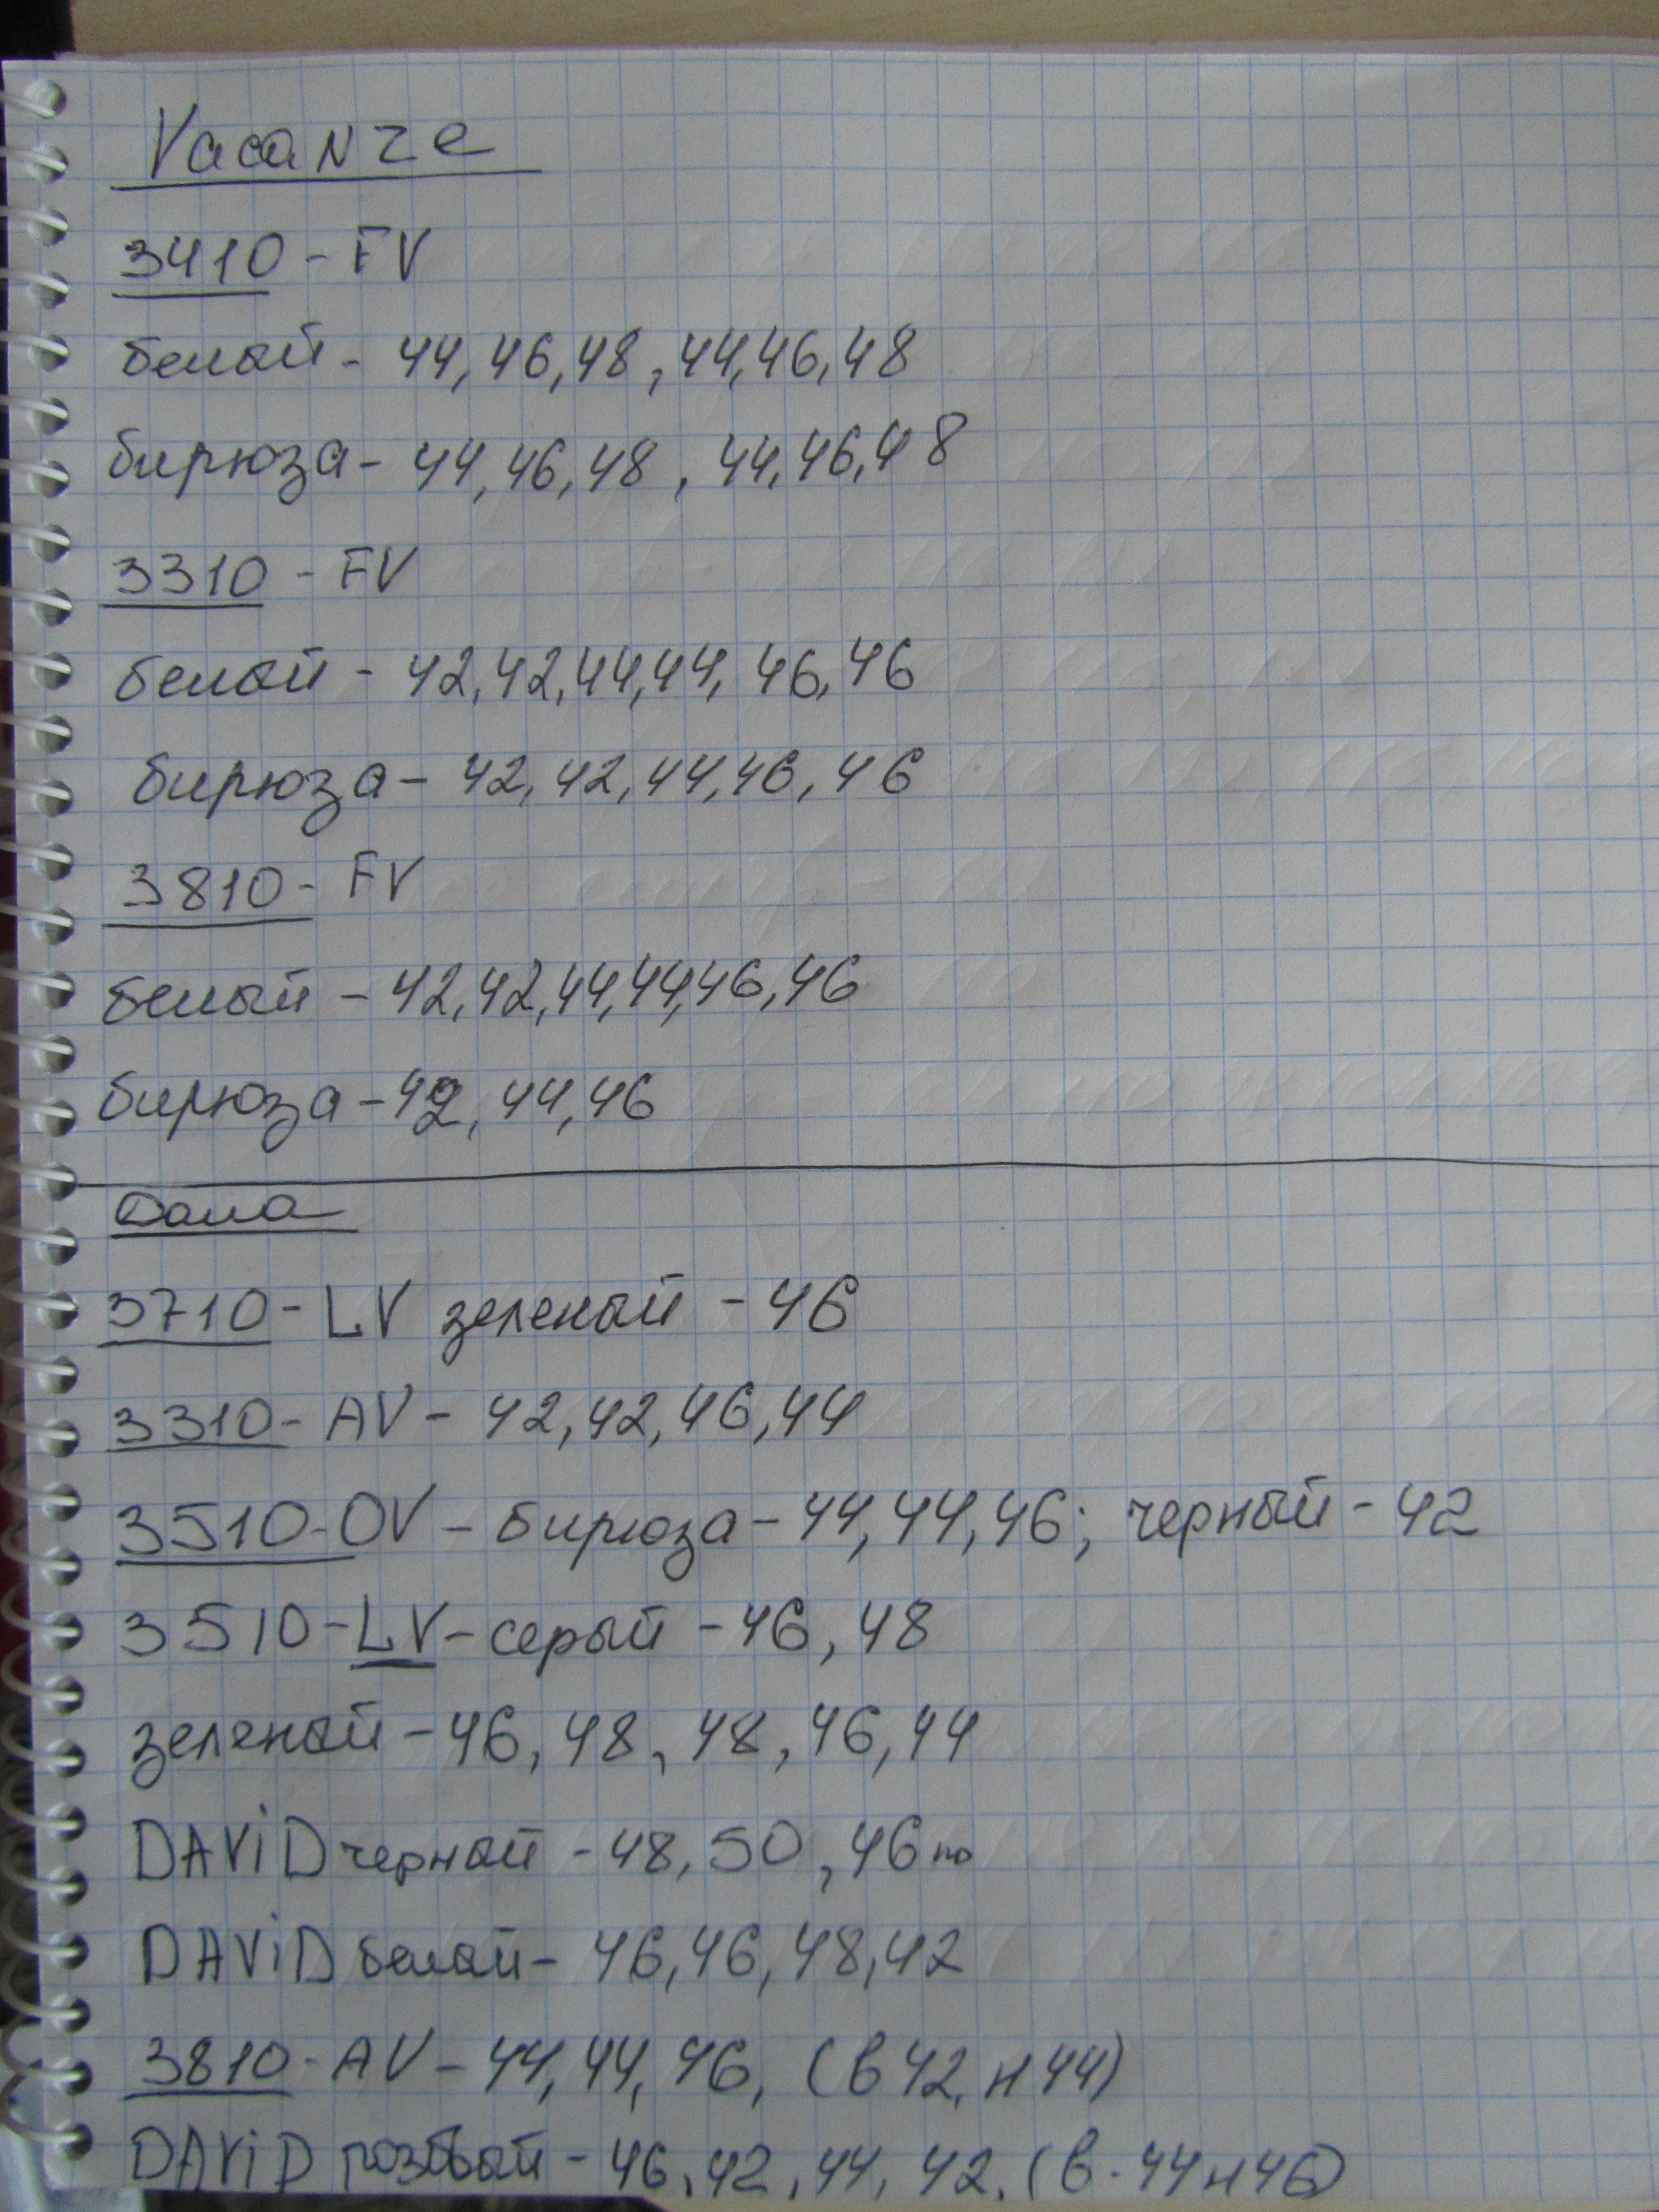 Vacanze
3410 - FV
белый - 44, 46, 48, 44, 46, 48
бирюза - 44, 46, 48, 44, 46, 48
3310 - FV
белый - 42, 42, 44, 44, 46, 46
бирюза - 42, 42, 44, 46, 46
3810 - FV
белый - 42, 42, 44, 44, 46, 46
бирюза - 42, 44, 46
Дама
3710 - LV зеленый - 46
3310 - AV - 42, 42, 46, 44
3510 - OV - бирюза - 44, 44, 46; черный - 42
3510 - LV - серый - 46, 48
зеленый - 46, 48, 48, 46, 44
DAViD черный - 48, 50, 46 по
DAViD белый - 46, 46, 48, 42
3810 - AV - 44, 44, 46, (в 42, н 44)
DAViD розовый - 46, 42, 44, 42, (в - 44 н 46)